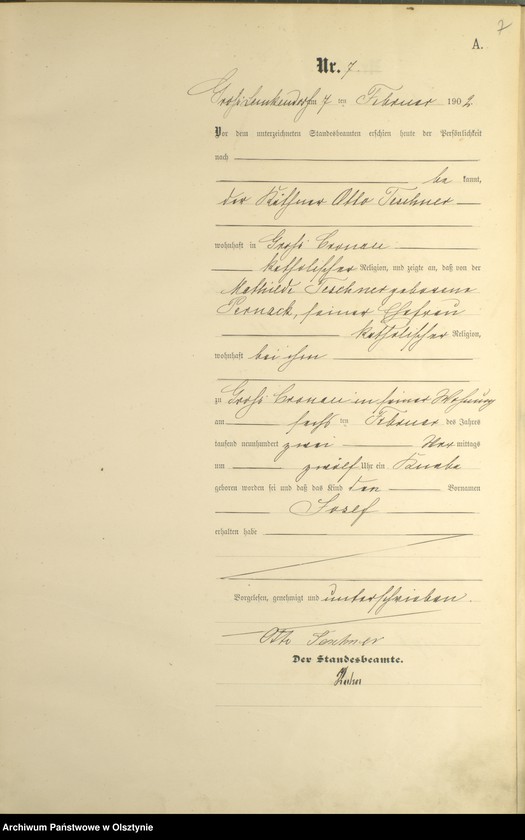 7
A.
Nr. 7
Groß Lemkendorf am 7 ten Februar 1902
Vor dem unterzeichneten Standesbeamten erschien heute der Persönlichkeit
nach
be kannt,
der Käthner Otto Teschner
wohnhaft in Groß Cronau
katholischer Religion, und zeigte an, daß von der
Mathilde Teschner geborene
seiner Ehefrau
katholischer Religion,
wohnhaft bei ihm
zu Groß Cronau in seiner Wohnung
am sechs ten Februar des Jahres
tausend neunhundert zwei Vor mittags
um zwölf Uhr ein Knabe
geboren worden sei und daß das Kind den Vornamen
Josef
erhalten habe
Vorgelesen, genehmigt und unterschrieben.
Otto Teschner
Der Standesbeamte.
Archiwum Państwowe w Olsztynie